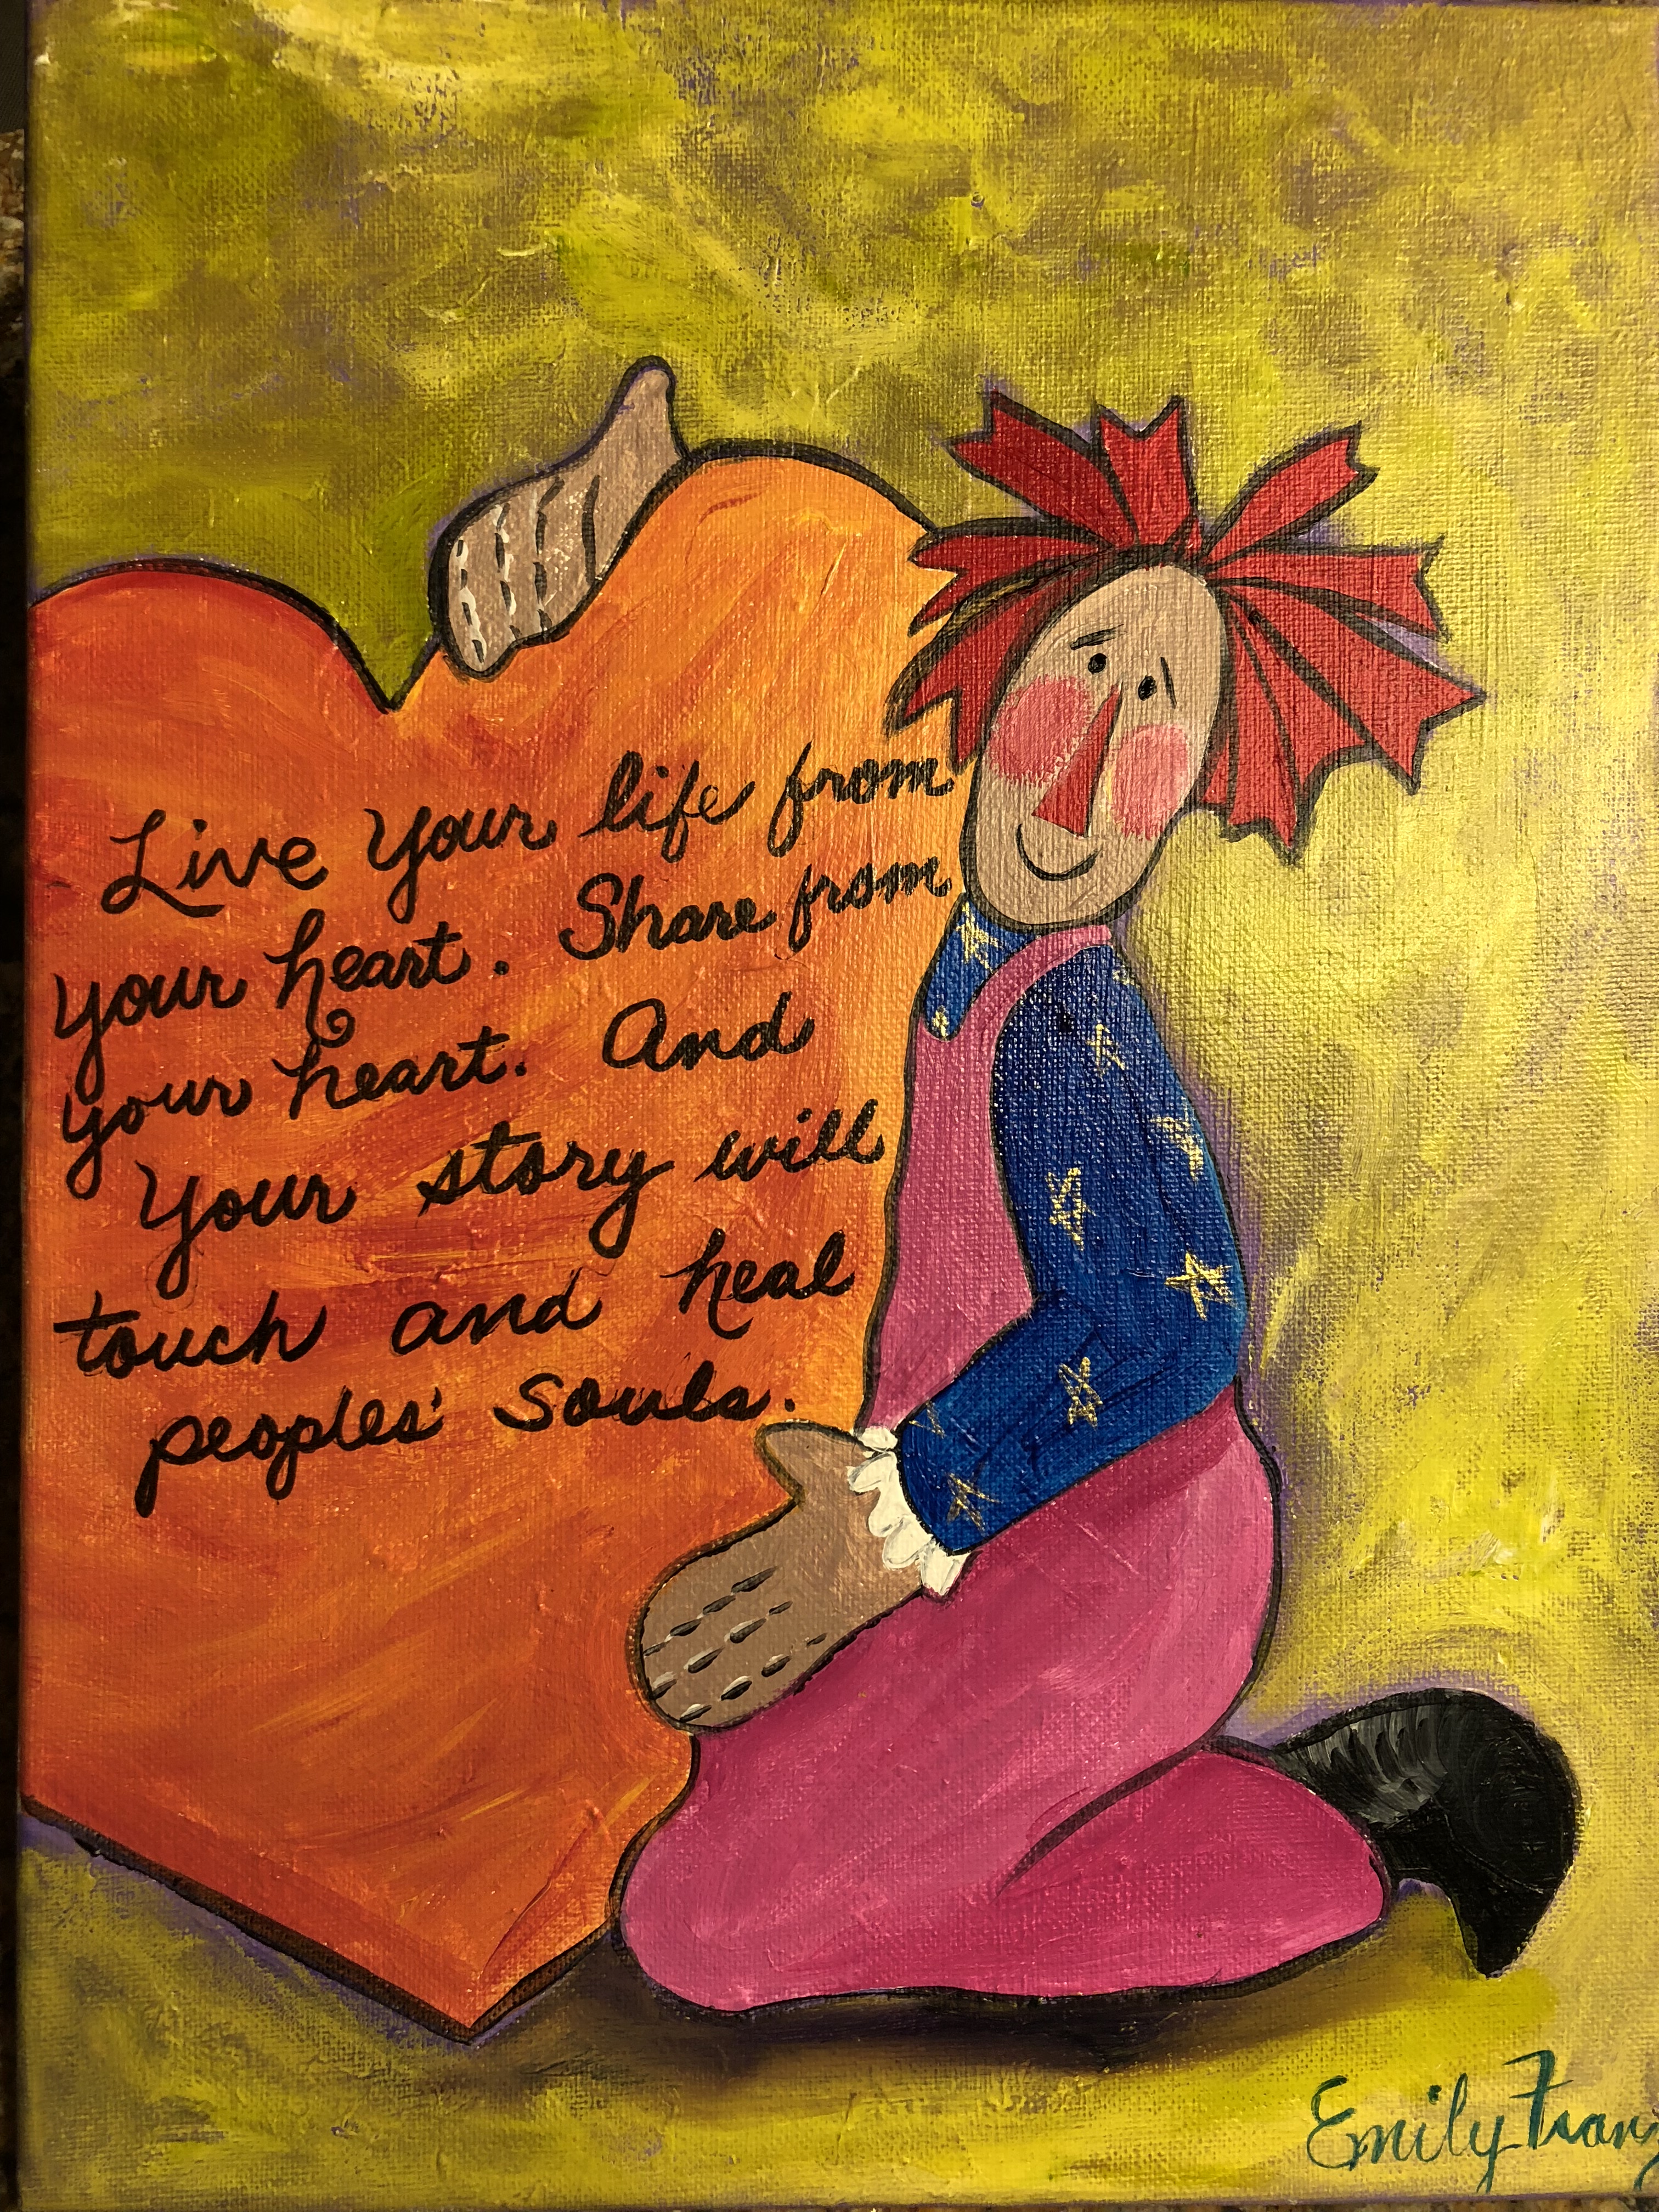 Live Your life from
your heart. Share from
your heart. And
Your story will
touch and heal
peoples' souls.
Emily Franz